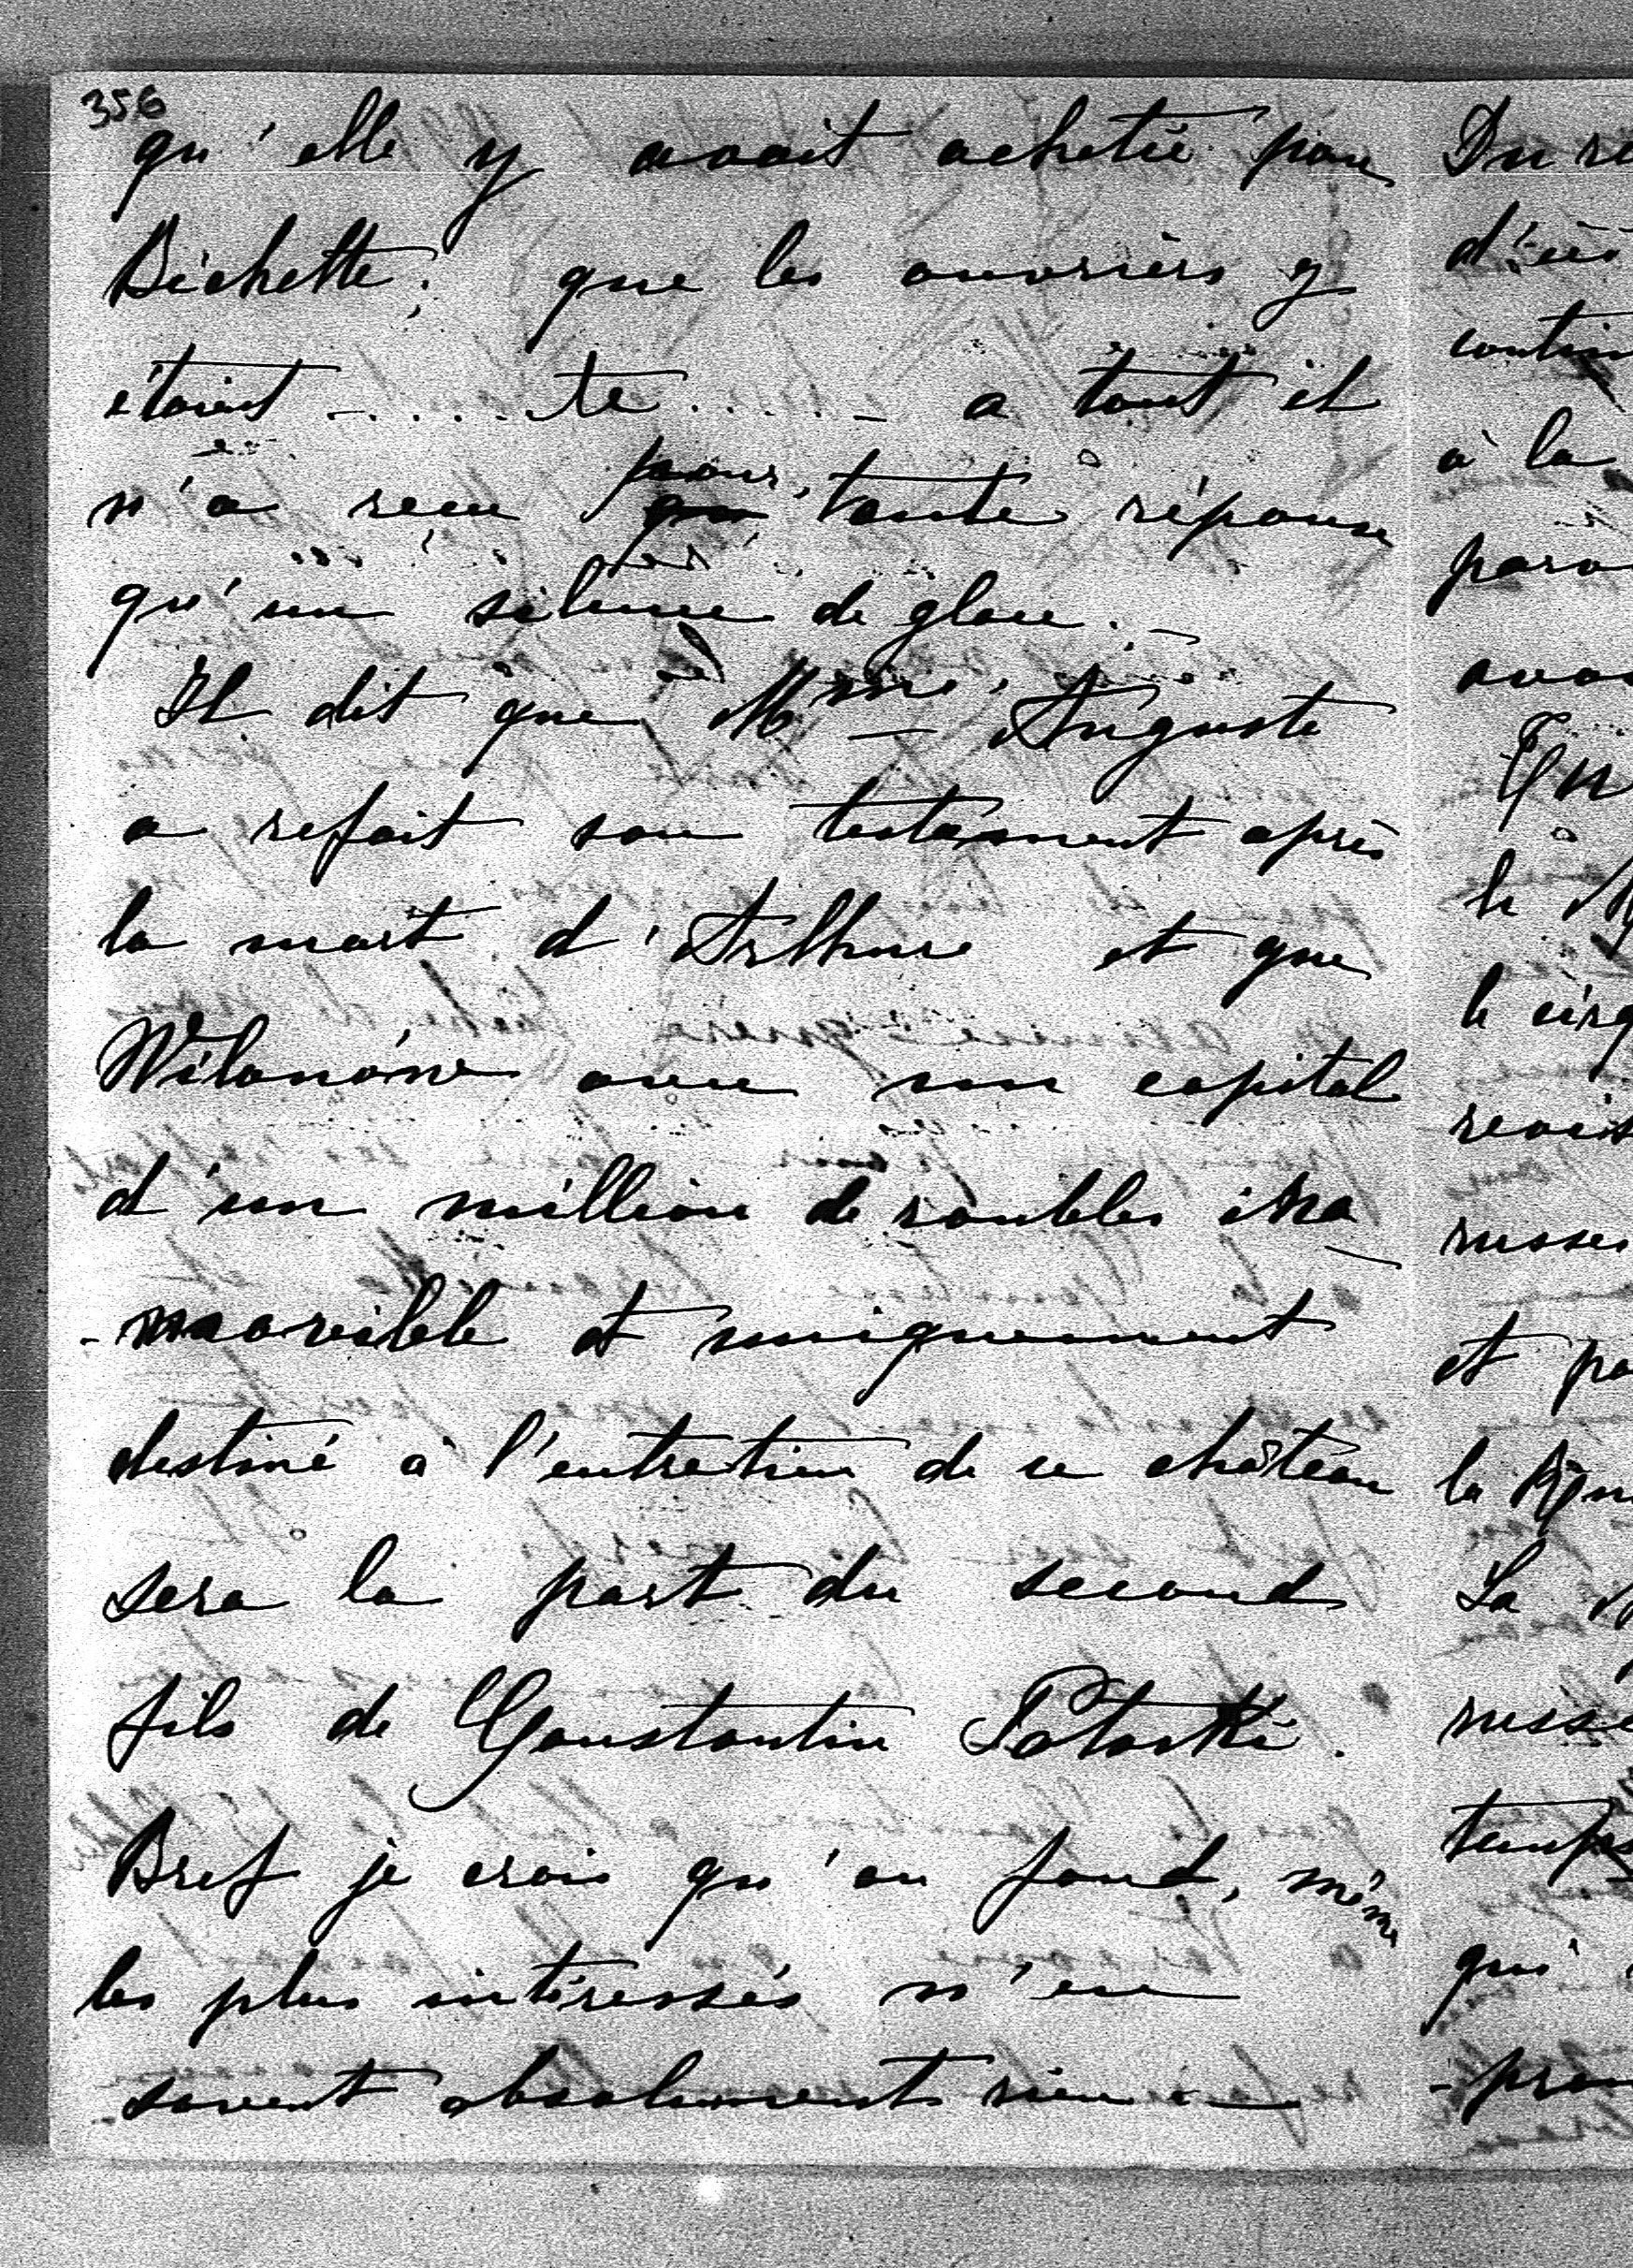 356
qu'elle y avait acheté pour
Bichette; que les ouvriers y
étaient -.....te.....- a tout il
n'a reçu pour toute réponse
qu'un silence de glace. -
Il dit que Mme Auguste
a refait son testament après
la mort d'Arthur et que
Wilanów avec un capital
d'un million de roubles ina
-movible et uniquement
destiné à l'entretien de ce château
sera la part du second
fils de Constantin Potocki.
Bref je crois qu'au fond, même
les plus intéressés n'en
savent absolument rien. -
Du re
contin
à la
paro
avai
russes
et pa
La
russe
temps
qui
-pro